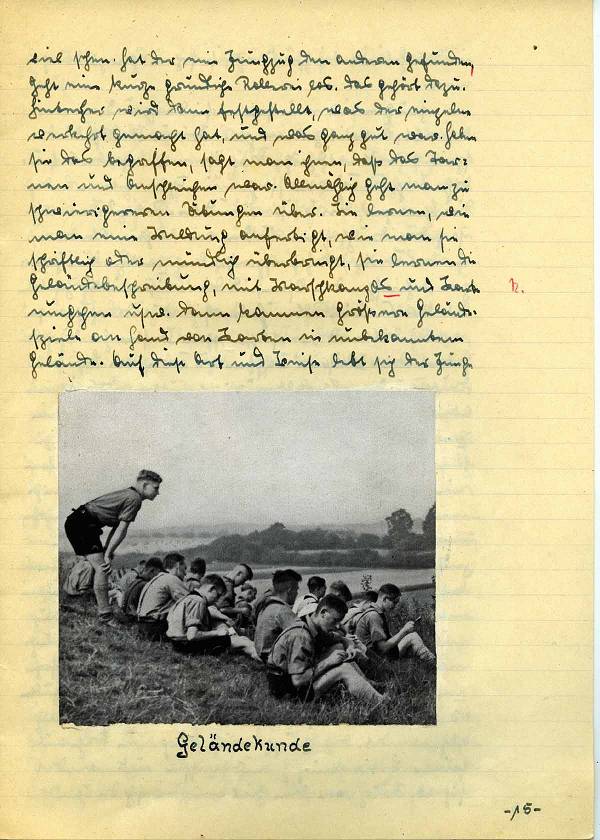 viel schon. Hat der eine Jungzug den anderen gefunden,
geht eine kurze gründliche Rollerei los. Das gehört dazu.
Hinterher wird dann festgestellt, was der einzelne
verkehrt gemacht hat, und was ganz gut war. Haben
sie das begriffen, sagt man ihnen, daß das Tar-
nen und Anschleichen war. Allmählich geht man zu
schwierigeren Übungen über. Sie lernen, wie
man eine Meldung anfertigt, wie man sie
schriftlich oder mündlich überbringt, sie lernen die
Geländebeschreibung, mit Marschkompas und Karte
umgehen usw. Dann kommen größere Gelände-
spiele an Hand von Karten in unbekanntem
Gelände. Auf diese Art und Weise lebt sich der Junge
Geländekunde
-15-